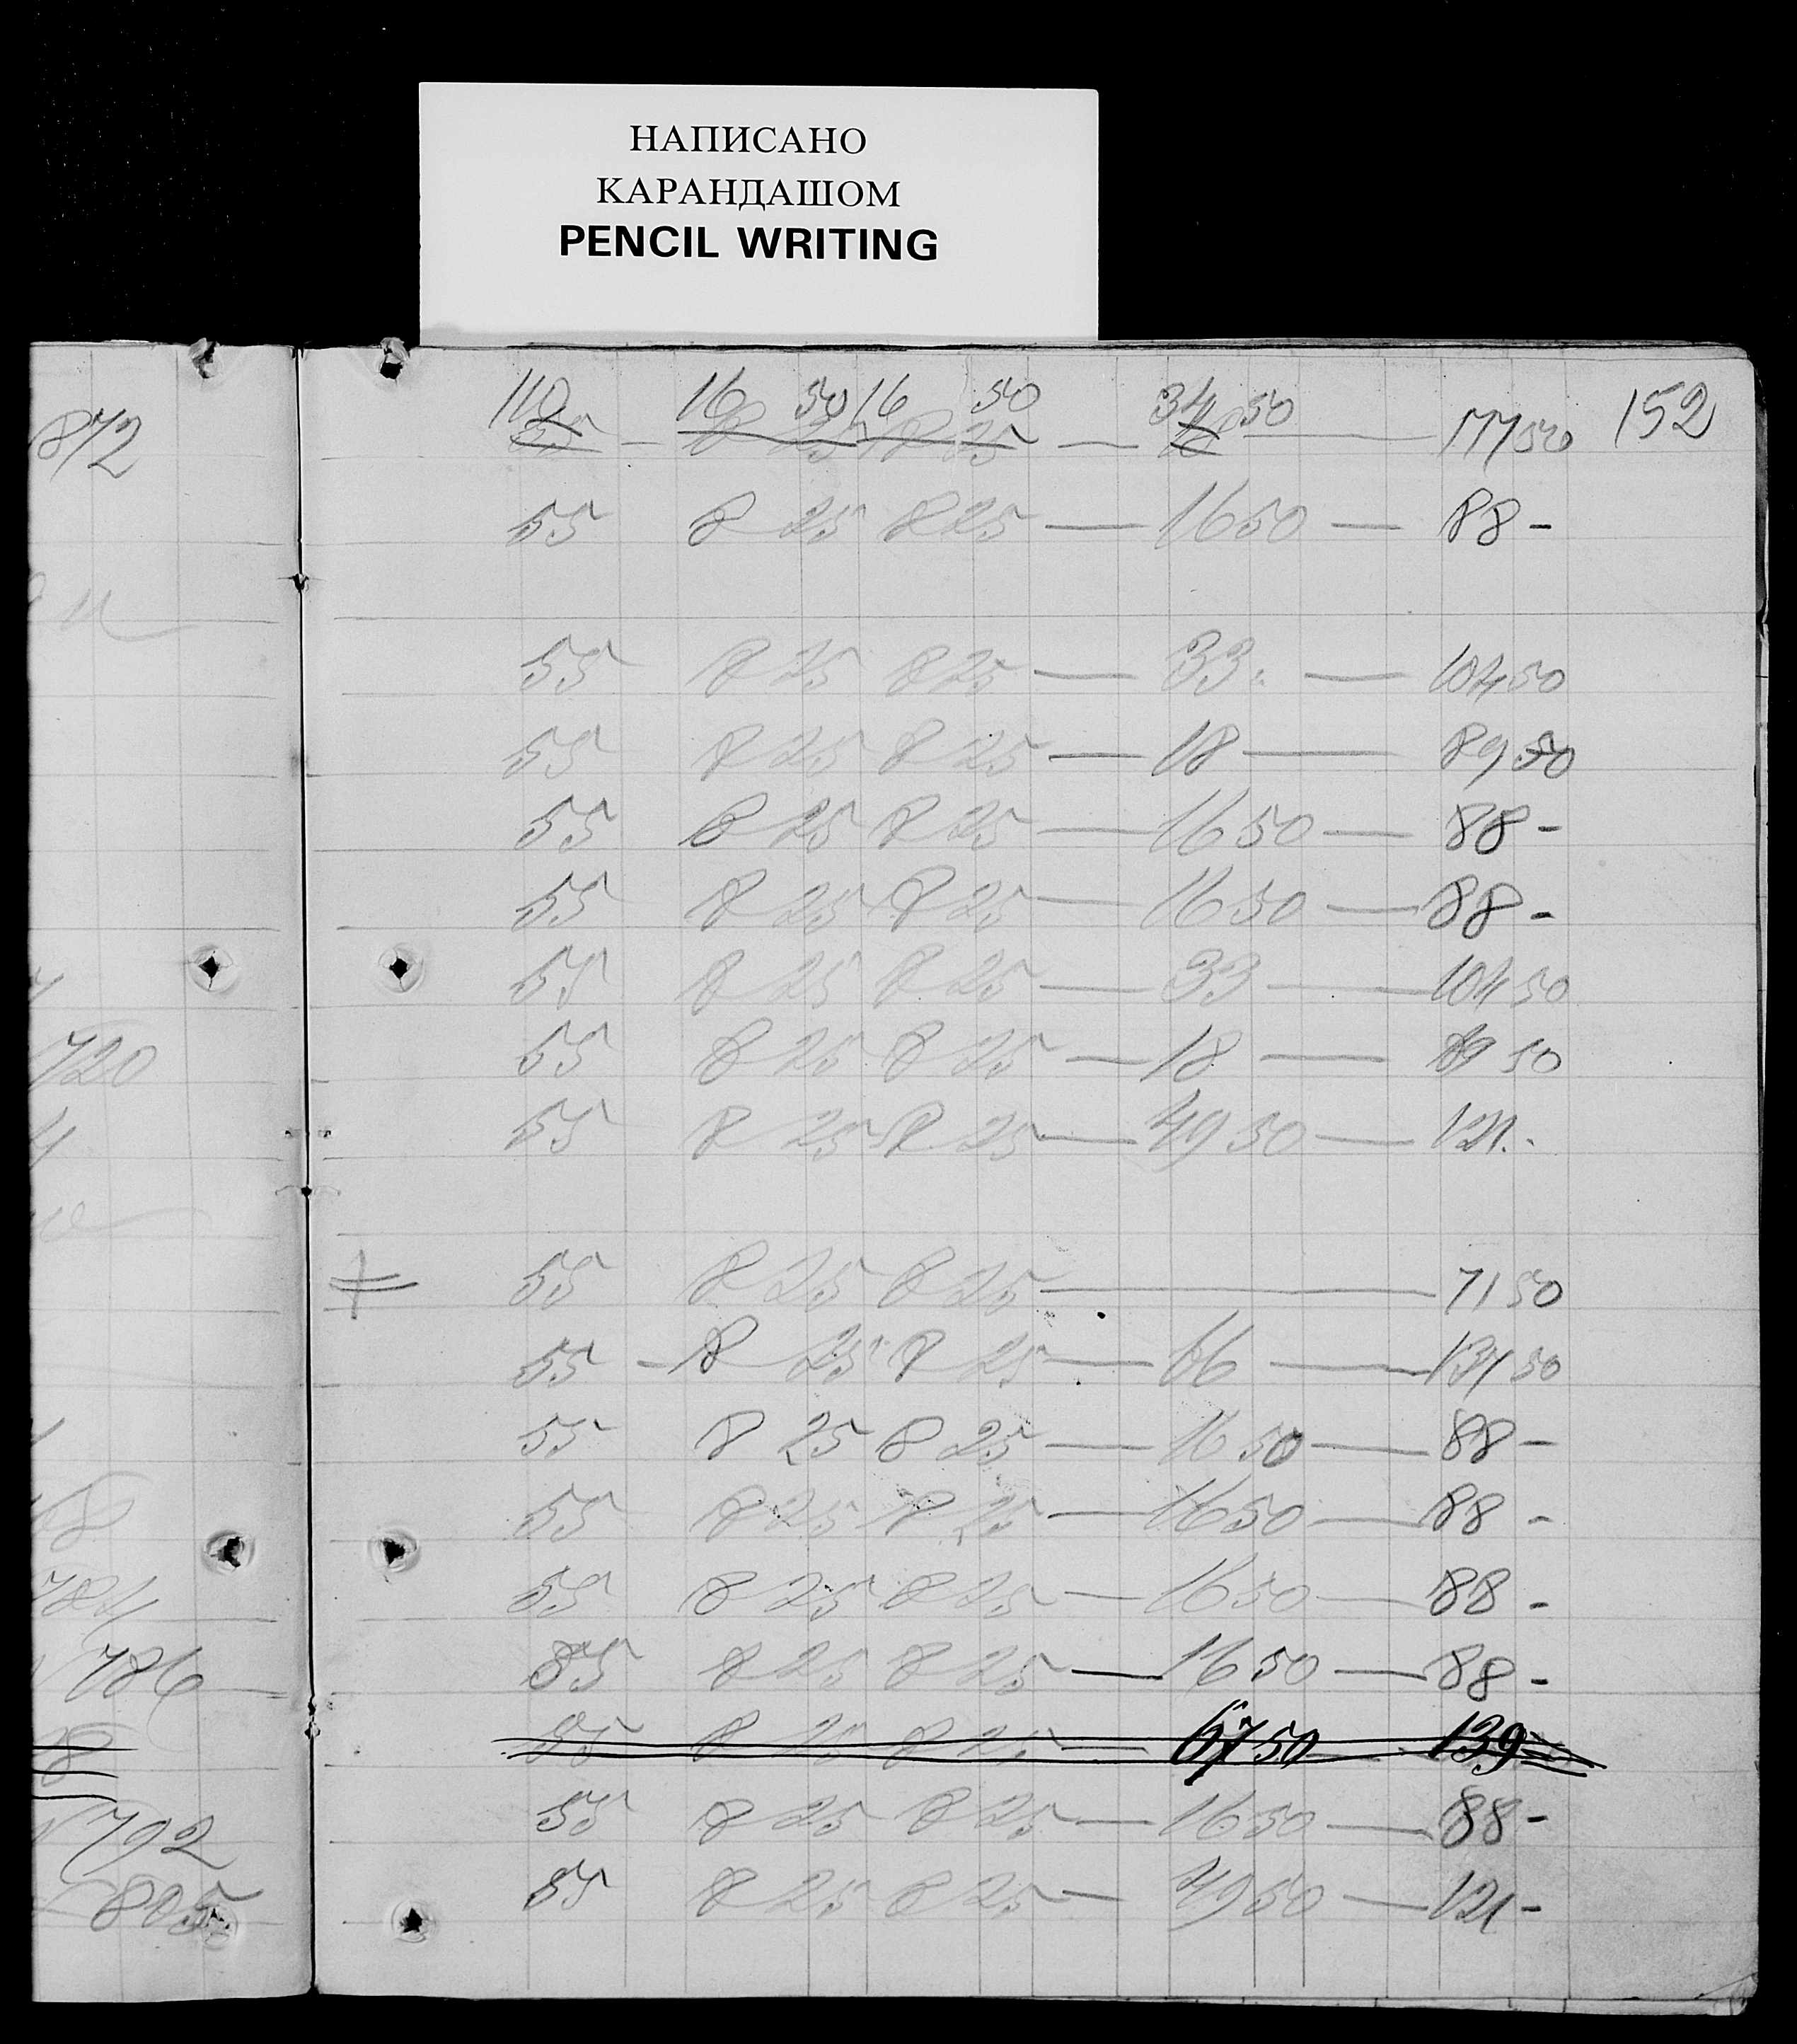 НАПИСАНО
КАРАНДАШОМ
PENCIL WRITING
872
152
110 16 50 16 50 34 50
55 — 8 25 8 25 — — 177 50
55 8 25 8 25 — 16 50 — 88 -
55 8 25 8 25 — 33 — 104 50
55 8 25 8 25 — 18 — 89 50
55 8 25 8 25 — 16 50 — 88 -
55 8 25 8 25 — 16 50 — 88 -
55 8 25 8 25 — 33 — 104 50
720
55 8 25 8 25 — 18 — 89 50
55 8 25 8 25 — 49 50 — 121.-
55 8 25 8 25 — 71 50
55 - 8 25 8 25 — 66 — 137 50
55 8 25 8 25 — 16 50 — 88 -
55 8 25 8 25 — 16 50 — 88 -
784
55 8 25 8 25 — 16 50 — 88 -
786
55 8 25 8 25 — 16 50 — 88 -
55 8 25 8 25 — 67 50 — 139
792
55 8 25 8 25 — 16 50 — 88 -
805
55 8 25 8 25 — 49 50 — 121 -